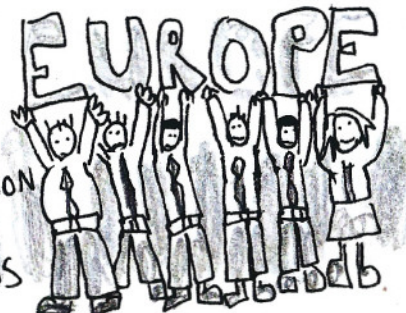 EUROPE
ON
S